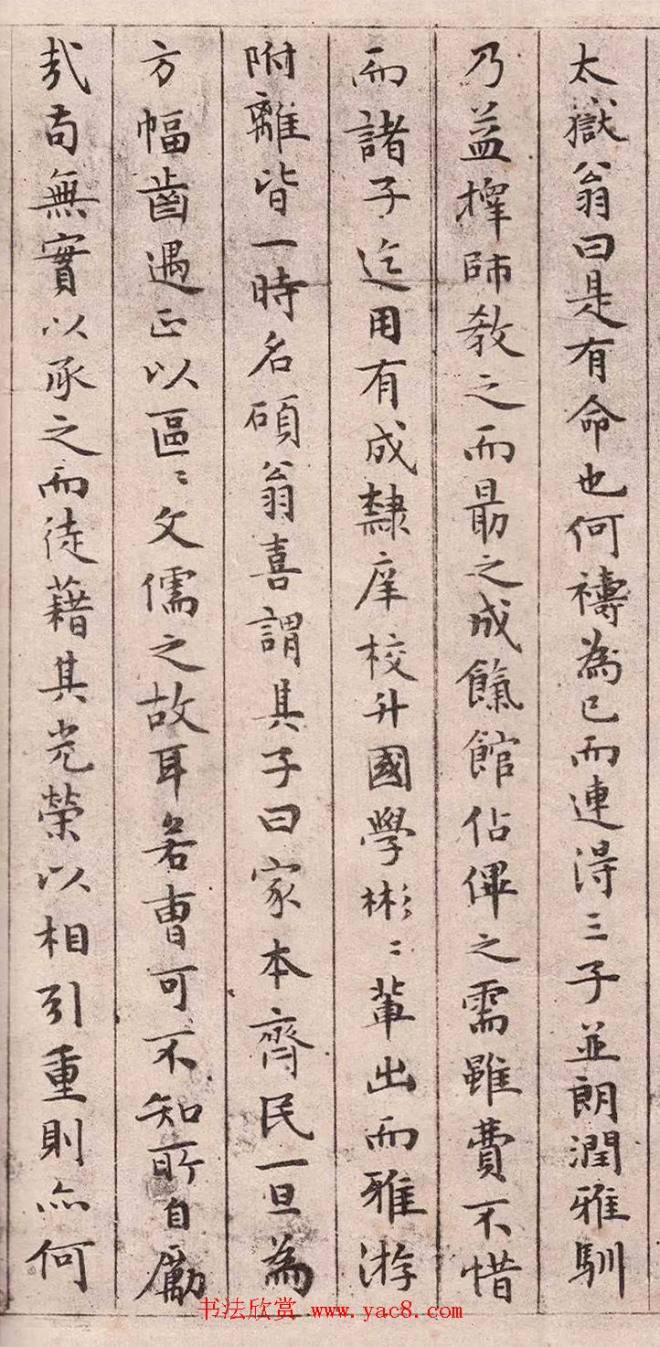 太嶽翁曰是有命也何禱為已而連得三子並朗潤雅馴
乃益擇師教之而勗之成餼館佔俾之需雖費不惜
而諸子迄用有成隸庠校升國學彬〻輩出而雅游
附離皆一時名碩翁喜謂其子曰家本齊民一旦為
方幅齒遇正以區〻文儒之故耳若曹可不知所自勵
哉苟無實以承之而徒藉其光榮以相引重則亦何
书法欣赏 www.yac8.com